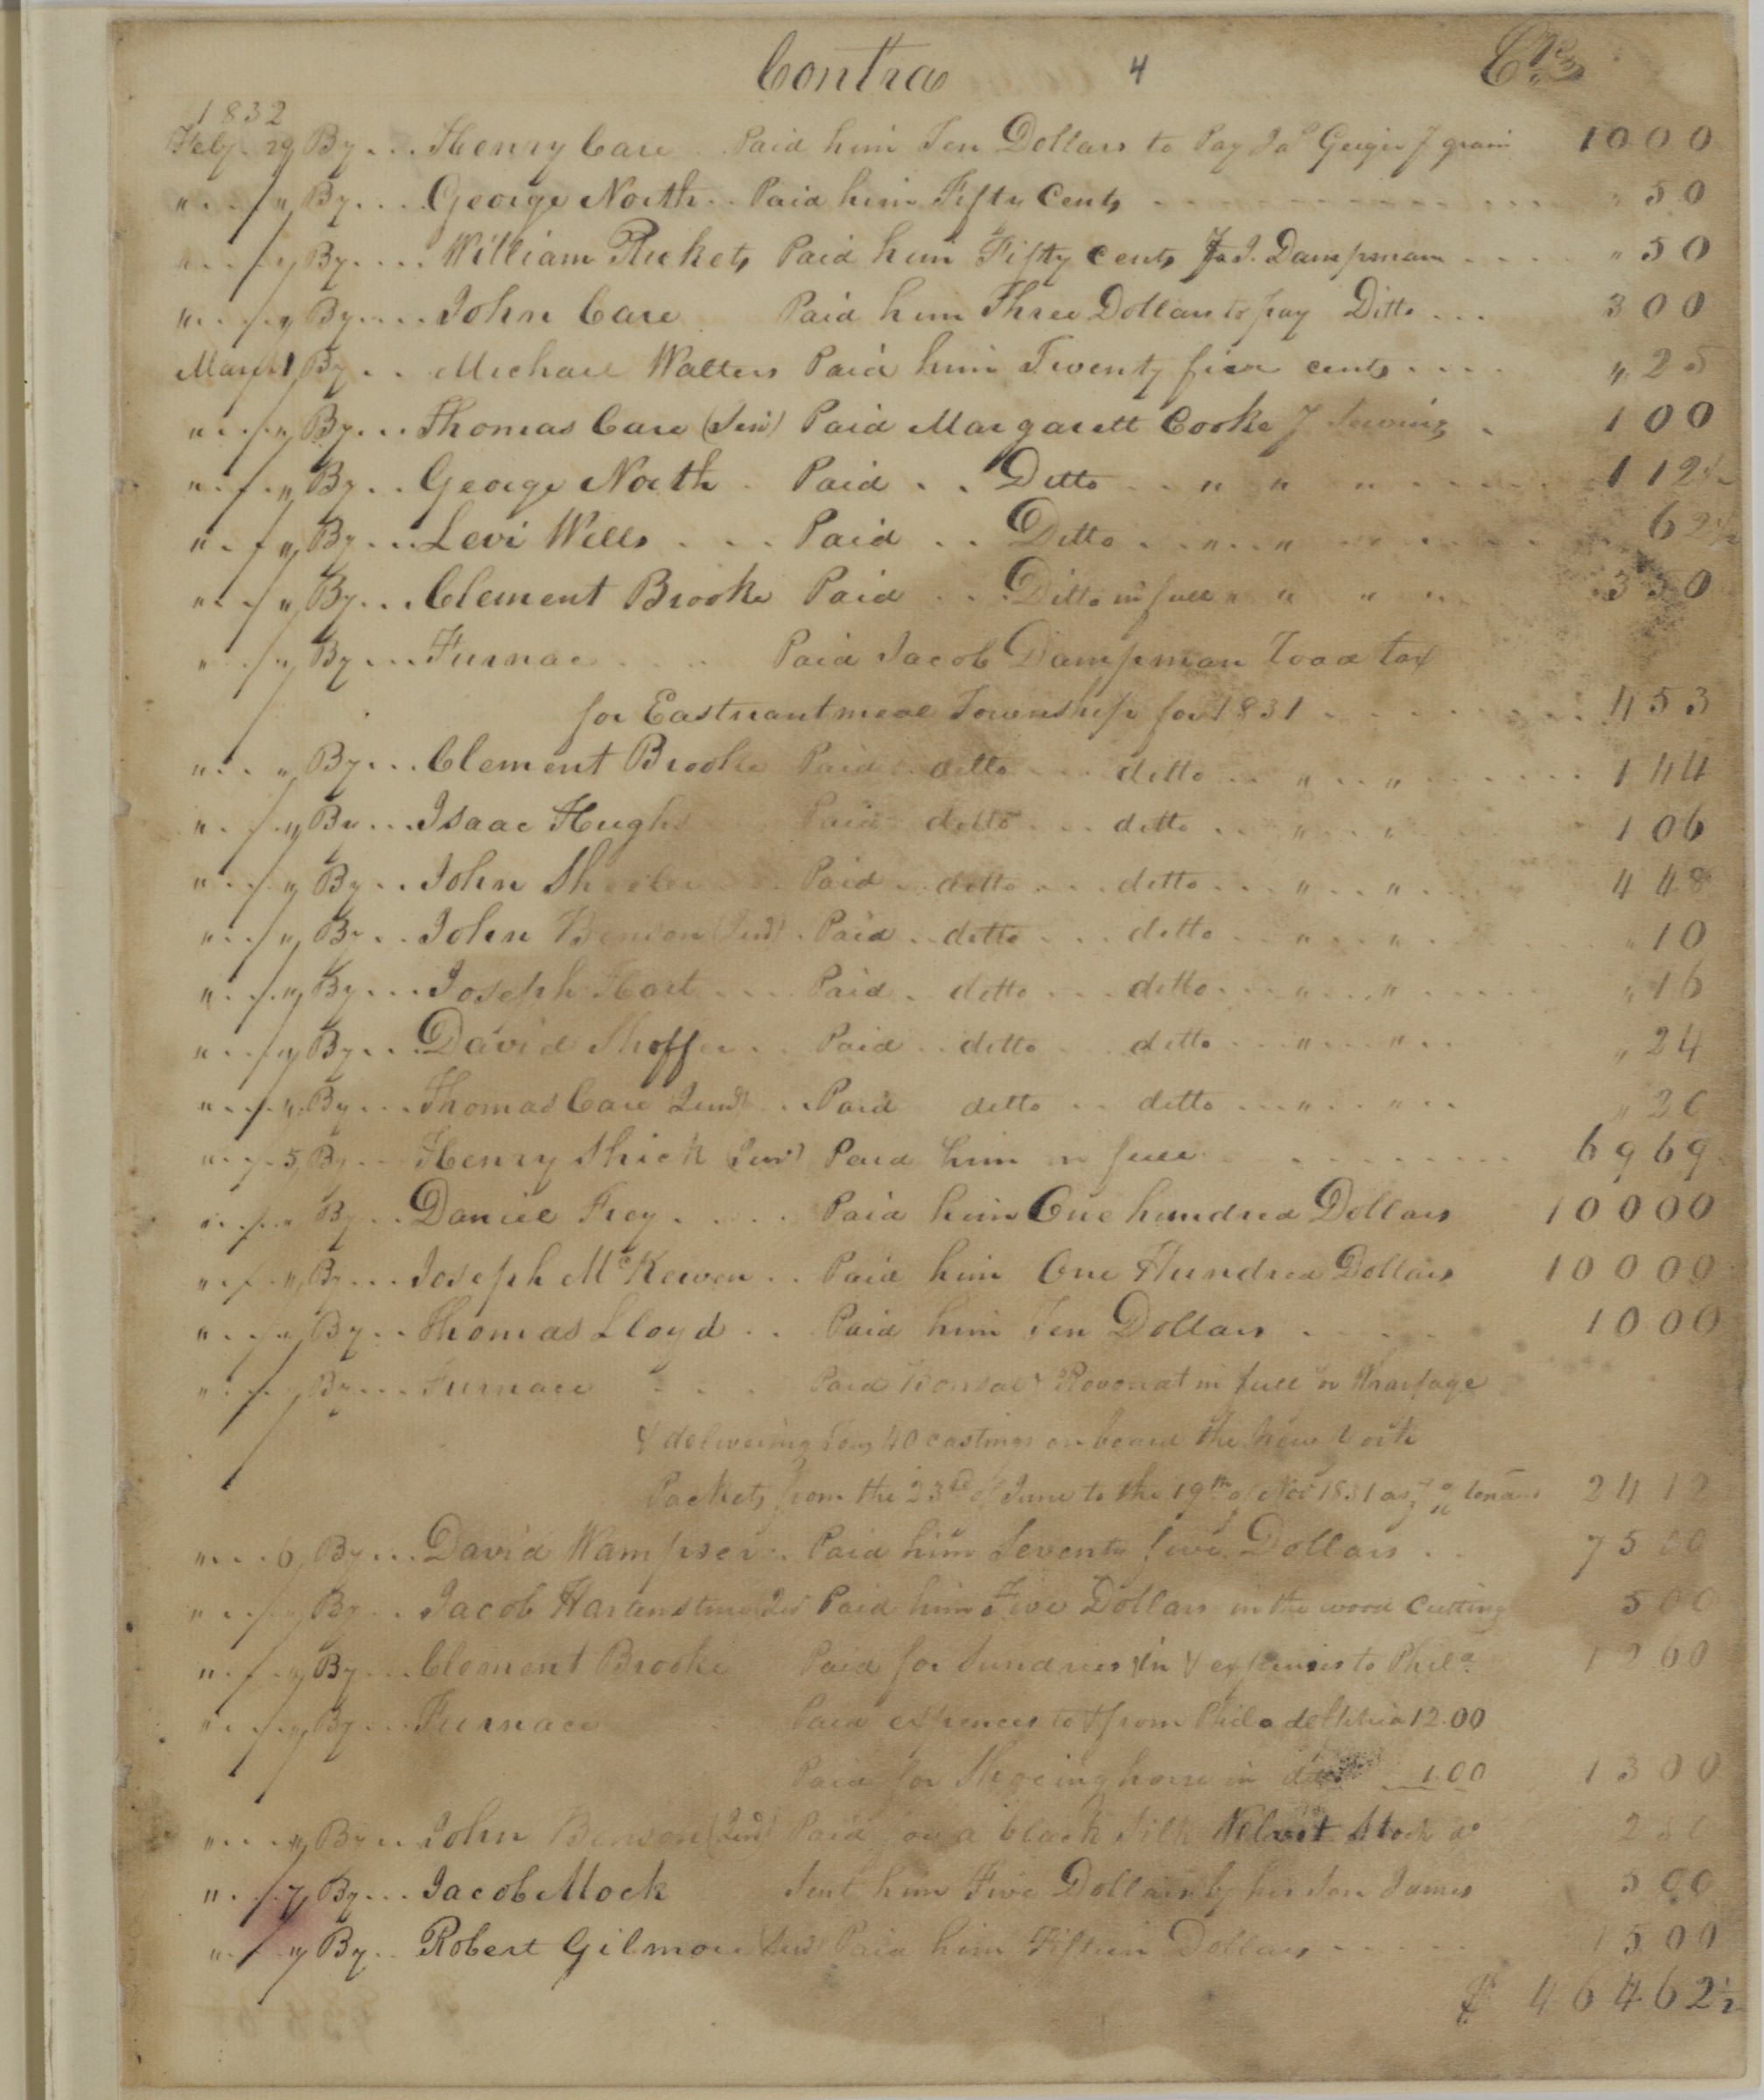 Contra 4 Cr
1832
Feby. 29 By... Henry Care Paid him Ten Dollars to Pay Ja^s Geiger f grain 1000
" . . " By.... George North.. Paid him Fifty Cents " 50
" . . " By.... William Rickets Paid him Fifty Cents J. Dampman .... " 50
" . . " By.... John Care Paid him Three Dollars to pay Ditto ... 300
March 1 By.. Michael Walters Paid him Twenty five cents .... " 25
" . . " By... Thomas Care (Sen^r) Paid Margarett Cooke f Sewing . 100
" . . " By.. George North . Paid .. Ditto .. " " " 112½
" . . " By... Levi Wells ... Paid .. Ditto .. " .. " 62½
" . . " By... Clement Brooke Paid .. Ditto in full " " " " 350
" . . " By... Furnace .... Paid Jacob Dampman Road tax
for Eastnantmeal Township for 1831 ........ 453
" . . " By... Clement Brooke Paid . ditto ... ditto .. " .. " ...... 144
" . . " By... Isaac Hughs Paid ditto ... ditto .. " .. " 106
" . . " By.. John Sheeler .. Paid .. ditto ... ditto ... " .. " ... 448
" . . " By.. John Benson (Jun^r) . Paid .. ditto ... ditto .. " ... " . " 10
" . . " By... Joseph Hart .... Paid . ditto ... ditto ... " ... " ..... " 16
" . . " By... David Shoffer .. Paid .. ditto ... ditto ... " ... " .. " 24
" . . " By... Thomas Care Jun^r .. Paid ditto .. ditto ... " .. " ... " 20
" . . 5 By .. Henry Shick (Sen^r) Paid him in full ......... 6969
" . . " By .. Daniel Frey ..... Paid him One hundred Dollars 10000
" . . " By ... Joseph M^cKewen .. Paid him One Hundred Dollars 10000
" . . " By .. Thomas Lloyd .. Paid him Ten Dollars .... 1000
" . . " By ... Furnace ... Paid Bonsal & in full for Wharfage
& delivering Tons 40 castings on board the New York
Packets from the 23^rd of June to the 19^th of Nov^r 1831 as 2412
" . . 6 By ... David Wampser .. Paid him Seventy five Dollars .. 7500
" . . " By .. Jacob Hartenstine (Jun^r) Paid him Five Dollars in the wood Cutting 500
" . . " By ... Clement Brooke Paid for Sundries in & expenses to Phil^a. 1260
" . . " By ... Furnace Paid expences to & from Philadelphia 12.00
Paid for Shoeing horse in ... 1.00 1300
" . . " By .. John Benson (Jun^r) Paid for a black Silk Velvet Stock 250
" . . 7 By ... Jacob Mock Sent him Five Dollars by his Son James 500
" . . " By .. Robert Gilmore (Sen^r) Paid him Fifteen Dollars ...... 1500
$ 46462½